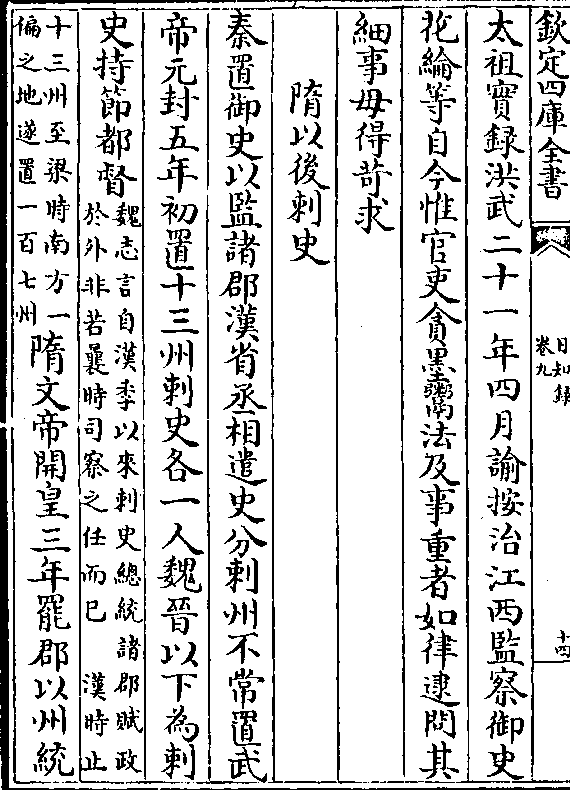 欽定四庫全書
日知録
卷九
十四
太祖實録洪武二十一年四月諭按治江西監察御史
花綸等自今惟官吏貪黑鬻法及事重者如律逮問其
細事毋得苛求
隋以後刺史
秦置御史以監諸郡漢省丞相遣史分刺州不常置武
帝元封五年初置十三州刺史各一人魏晉以下為刺
史持節都督魏志言自漢季以來刺史總統諸郡賦政
於外非若曩時司察之任而已 漢時止
十三州至梁時南方一
偏之地遂置一百七州隋文帝開皇三年罷郡以州統